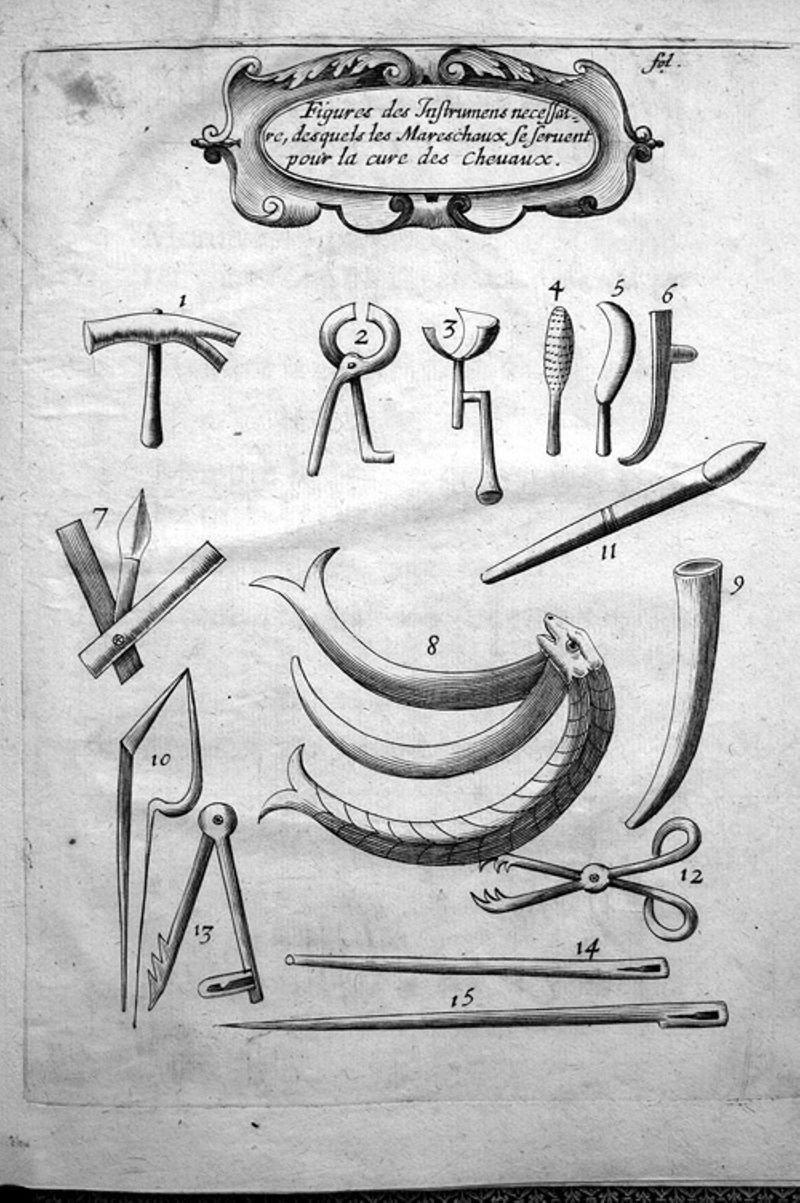 fol.
Figures des Inſtrumens neceſſai-
re, desquels les Mareschaux ſe ſeruent
pour la cure des Cheuaux.
1
2
3
4
5
6
7
11
9
8
10
12
13
14
15